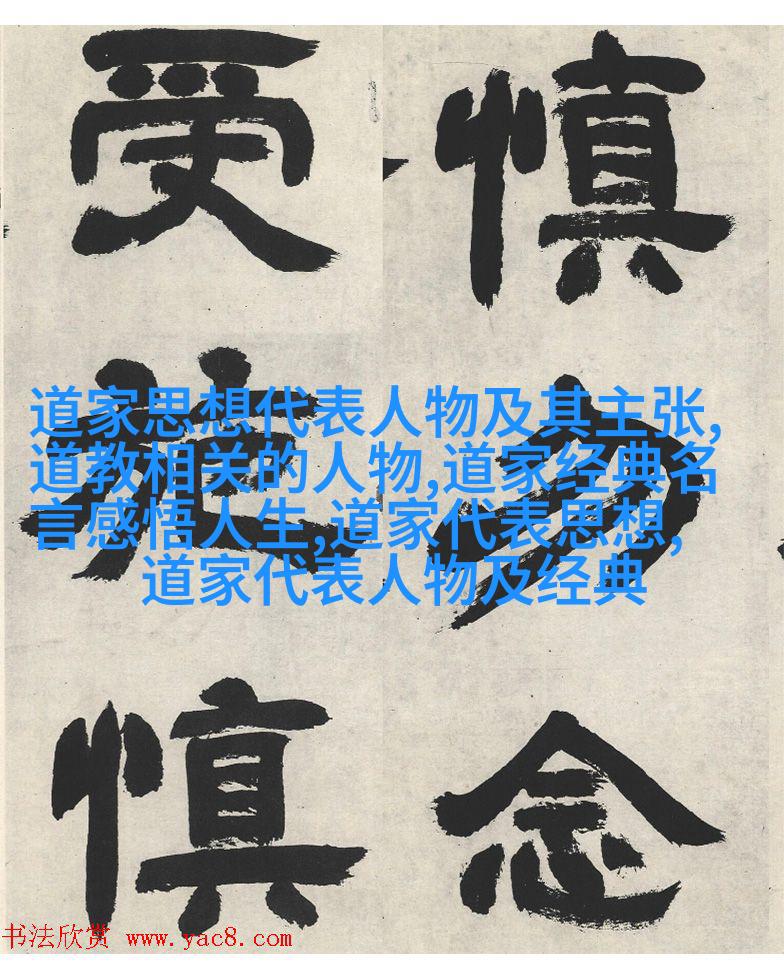 慎勿念
受施慎
道家思想代表人物及其主张,
道教相关的人物,道家经典名
言感悟人生,道家代表思想,
道家代表人物及经典
书法欣赏 www.yac8.com